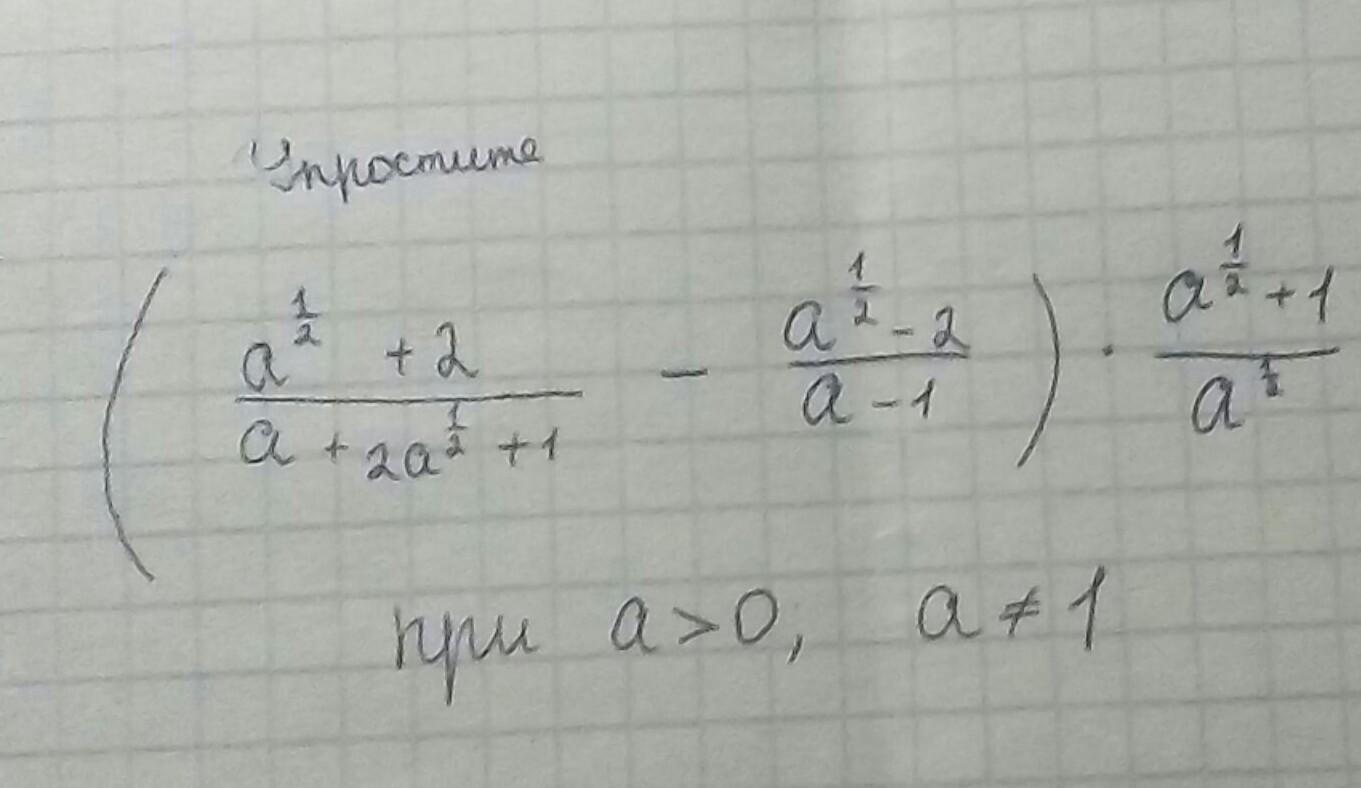 Упростите
( (a^(1/2) + 2)/(a + 2a^(1/2) + 1) − (a^(1/2) − 2)/(a − 1) ) · (a^(1/2) + 1)/a^(1/2)
при a > 0, a ≠ 1